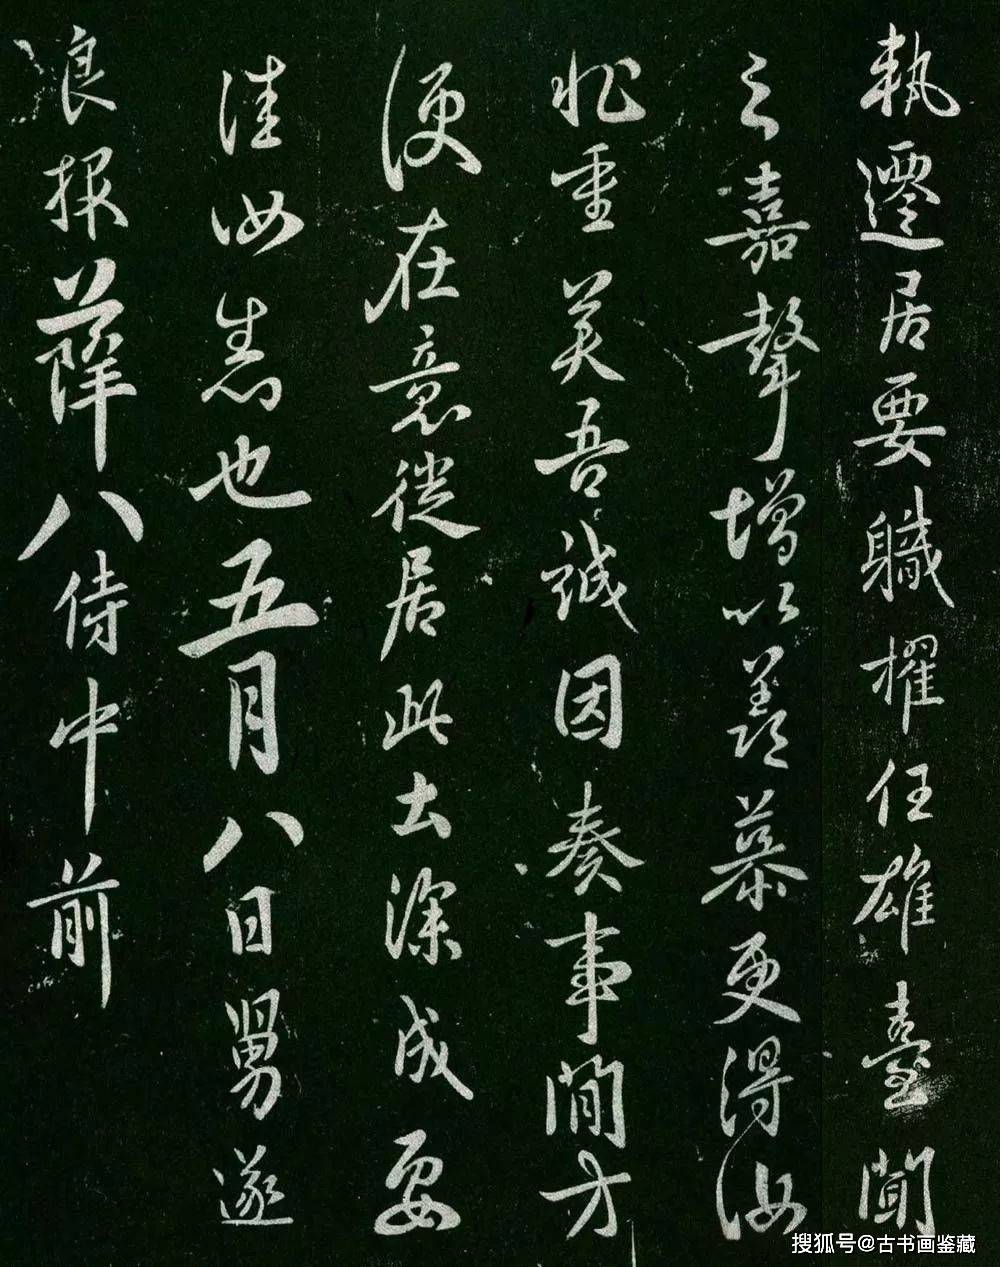 執遷居要職擢任雄臺聞
之嘉聲增以羨慕更得汝
重美吾誠因奏事間方
便在意徙居此去深成要
佳汝悉也五月八日舅遂
良報薛八侍中前
搜狐号@古书画鉴藏